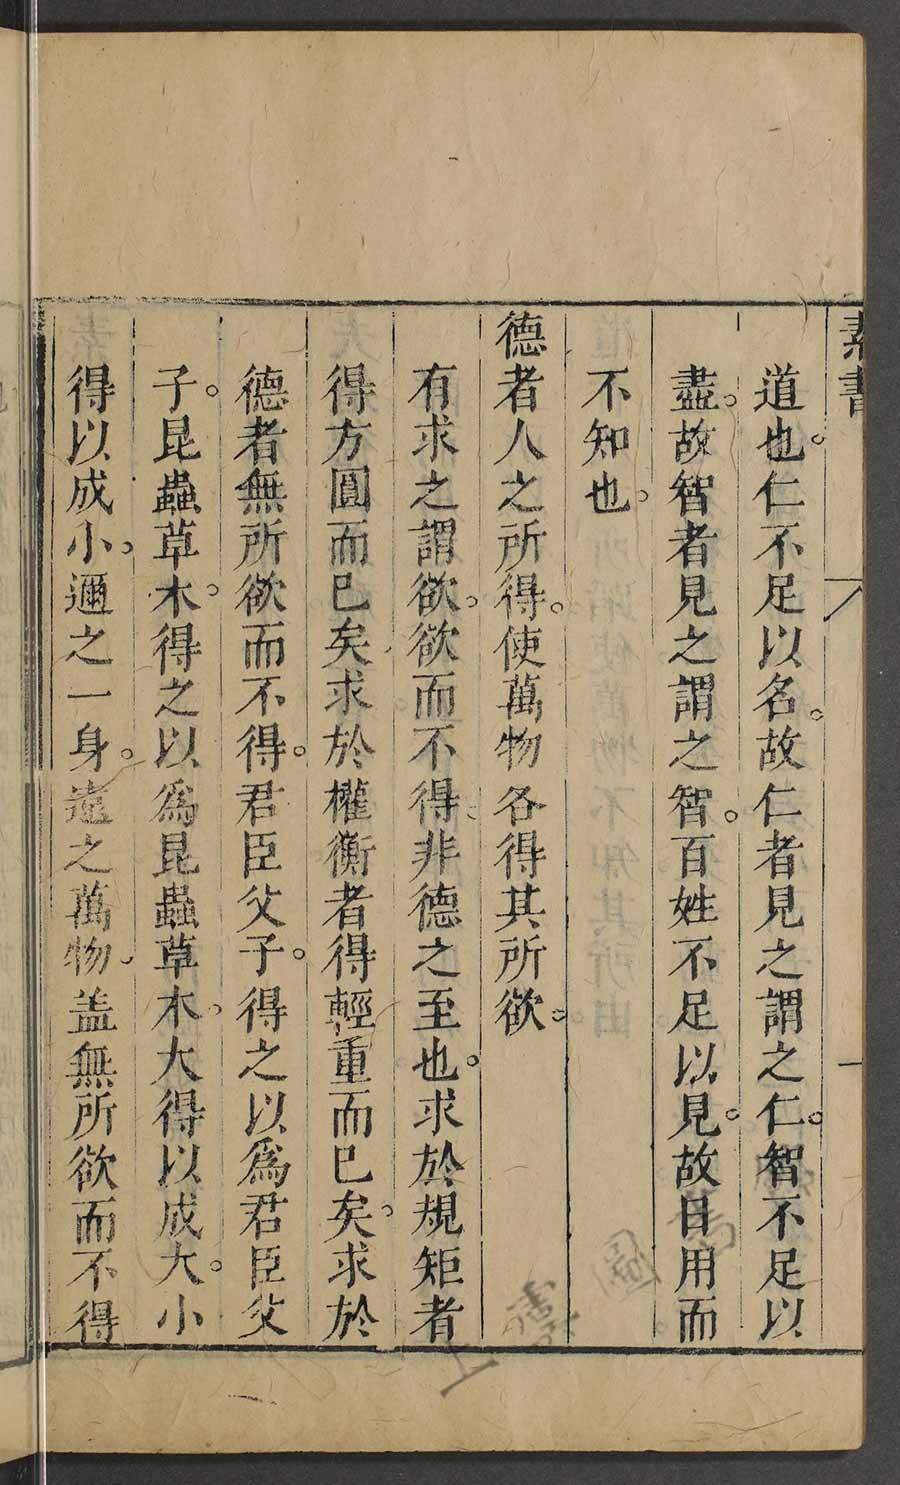 素書
道也。仁不足以名。故仁者見之謂之仁。智不足以
盡。故智者見之謂之智。百姓不足以見。故日用而
不知也。
德者人之所得。使萬物各得其所欲。
有求之謂欲。欲而不得。非德之至也。求於規矩者
得方圓而已矣求於權衡者得輕重而已矣。求於
德者無所欲而不得。君臣父子。得之以爲君臣父
子。昆蟲草木。得之以爲昆蟲草木。大得以成大。小
得以成小。邇之一身。遠之萬物。盖無所欲而不得